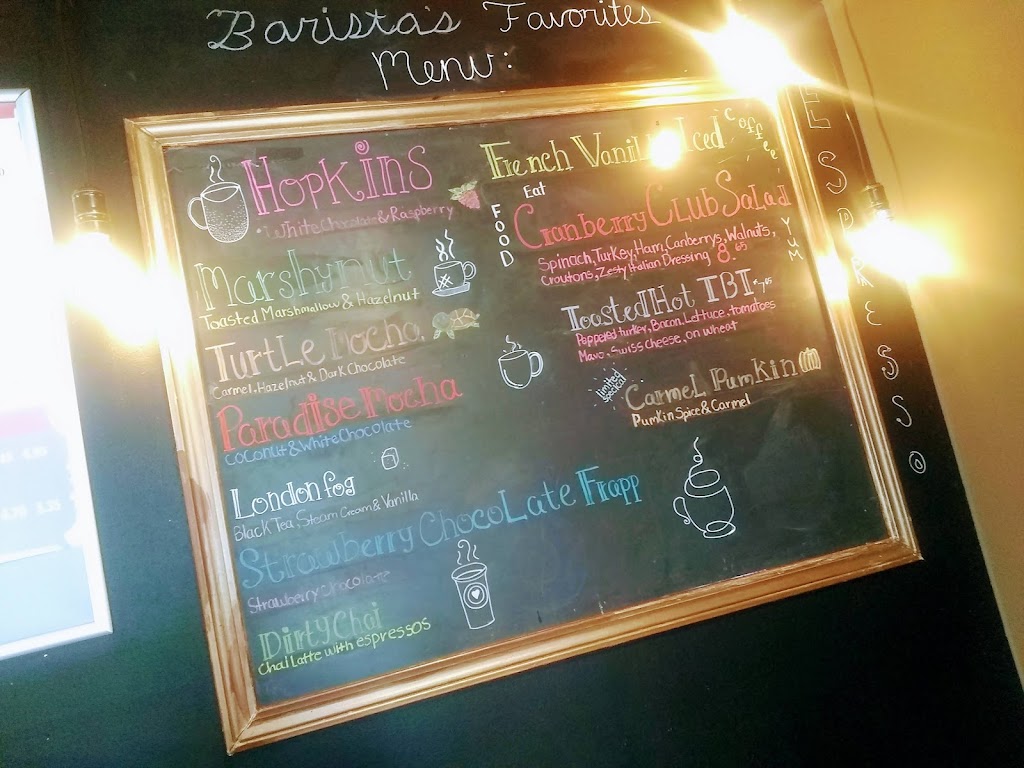 Barista's Favorites
Menu:
Hopkins
White Chocolate & Raspberry
Marshynut
Toasted Marshmallow & Hazelnut
Turtle Mocha
Carmel, Hazelnut & Dark Chocolate
Paradise Mocha
Coconut & White Chocolate
London fog
Black Tea, Steam Cream & Vanilla
Strawberry Chocolate Frapp
Strawberry Chocolate
Dirty Chai
Chai Latte with espressos
French Vanilla Iced Coffee
Eat
FOOD
Cranberry Club Salad
Spinach, Turkey, Ham, Canberrys, Walnuts,
Croutons, Zesty Italian Dressing 8.65
YUM
Toasted Hot TBT
Peppered turkey, Bacon, Lettuce, tomatoes
Mayo, Swiss Cheese, on wheat
limited
special
Carmel Pumkin
Pumkin Spice & Carmel
ESSPRESSO